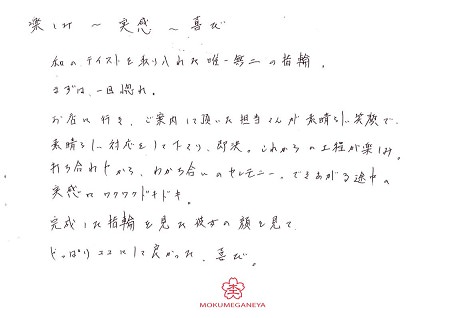 楽しみ ~ 実感 ~ 喜び
和のテイストを取り入れた唯一無二の指輪。
まずは、一目惚れ。
お店に行き、ご案内して頂いた担当さんが素晴らしい笑顔で、
素晴らしい対応をして下さり、即決。これからの工程が楽しみ。
打ち合わせから、わかち合いのセレモニー。できあがる途中の
実感にワクワクドキドキ。
完成した指輪を見た彼女の顔を見て
やっぱりココにして良かった、喜び。
MOKUMEGANEYA